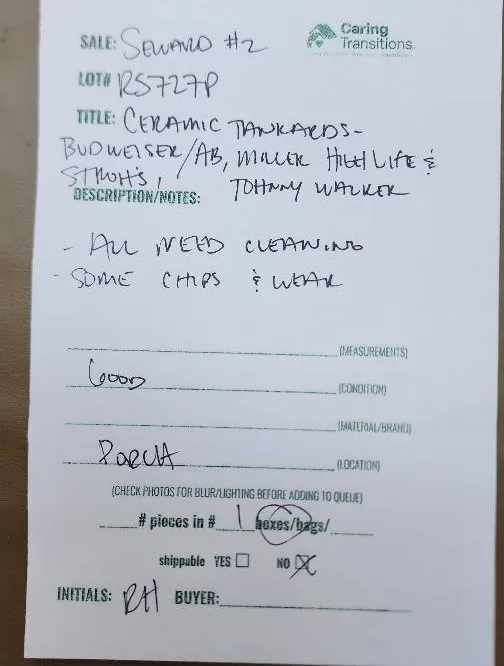 SALE: SEWARD #2
Caring Transitions
LOT# RS727P
TITLE: CERAMIC TANKARDS-
BUDWEISER/AB, MILLER HIGH LIFE &
STROH'S, JOHNNY WALKER
DESCRIPTION/NOTES:
- ALL NEED CLEANING
- SOME CHIPS & WEAR
(MEASUREMENTS)
GOOD (CONDITION)
(MATERIAL/BRAND)
PORCH (LOCATION)
(CHECK PHOTOS FOR BLUR/LIGHTING BEFORE ADDING TO QUEUE)
# pieces in # 1 boxes/bags/
shippable YES NO X
INITIALS: RH BUYER: